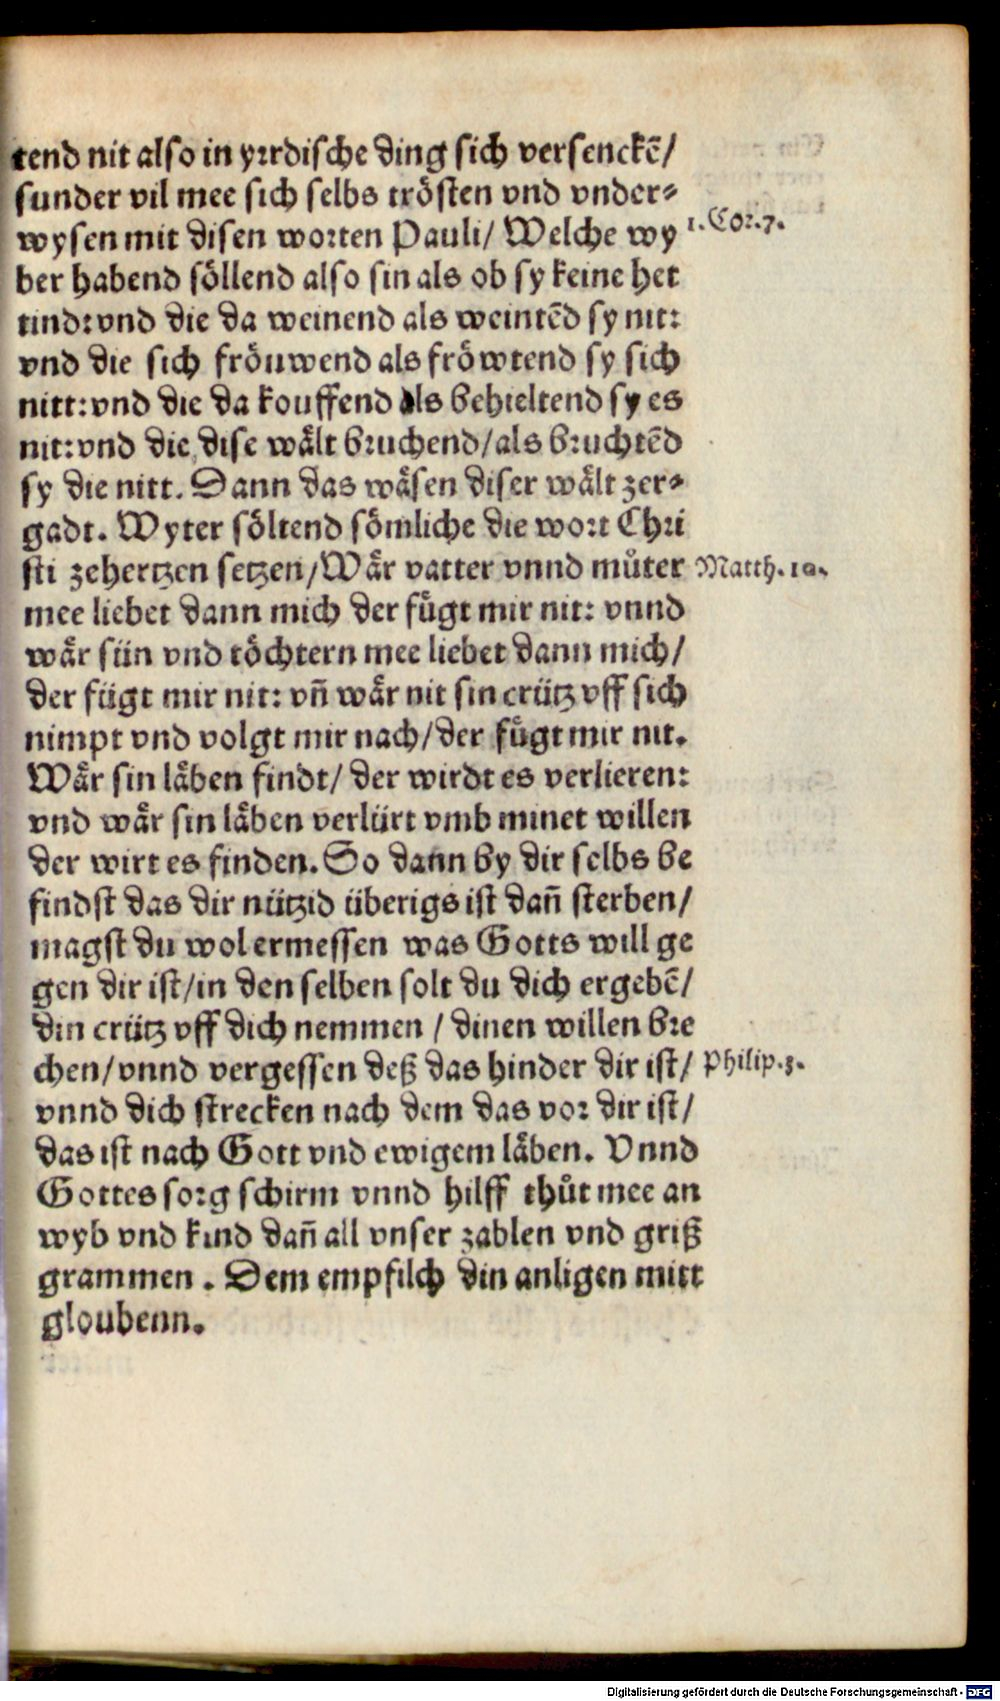 tend nit also in yrrdische ding sich versenckē/
sunder vil mee sich selbs trösten vnd vnder⸗
wysen mit disen worten Pauli/ Welche wy
1. Cor. 7.
ber habend söllend also sin als ob sy keine het
tind: vnd die da weinend als weintēd sy nit:
vnd die sich fröuwend als fröwtend sy sich
nitt: vnd die da kouffend als behieltend sy es
nit: vnd die dise wålt bruchend/ als bruchtēd
sy die nitt. Dann das wåsen diser wålt zer⸗
gadt. Wyter söltend sömliche die wort Chri
sti zehertzen setzen/ Wår vatter vnnd můter
Matth. 10.
mee liebet dann mich der fůgt mir nit: vnnd
wår sün vnd töchtern mee liebet dann mich/
der fügt mir nit: vn̄ wår nit sin crütz vff sich
nimpt vnd volgt mir nach/ der fůgt mir nit.
Wår sin låben findt/ der wirdt es verlieren:
vnd wår sin låben verlürt vmb minet willen
der wirt es finden. So dann by dir selbs be
findst das dir nützid überigs ist dan̄ sterben/
magst du wol ermessen was Gotts will ge
gen dir ist/ in den selben solt du dich ergebē/
din crütz vff dich nemmen / dinen willen bre
chen/ vnnd vergessen deß das hinder dir ist/
Philip. 3.
vnnd dich strecken nach dem das vor dir ist/
das ist nach Gott vnd ewigem låben. Vnnd
Gottes sorg schirm vnnd hilff thůt mee an
wyb vnd kind dan̄ all vnser zablen vnd griß
grammen . Dem empfilch din anligen mitt
gloubenn.
Digitalisierung gefördert durch die Deutsche Forschungsgemeinschaft - DFG